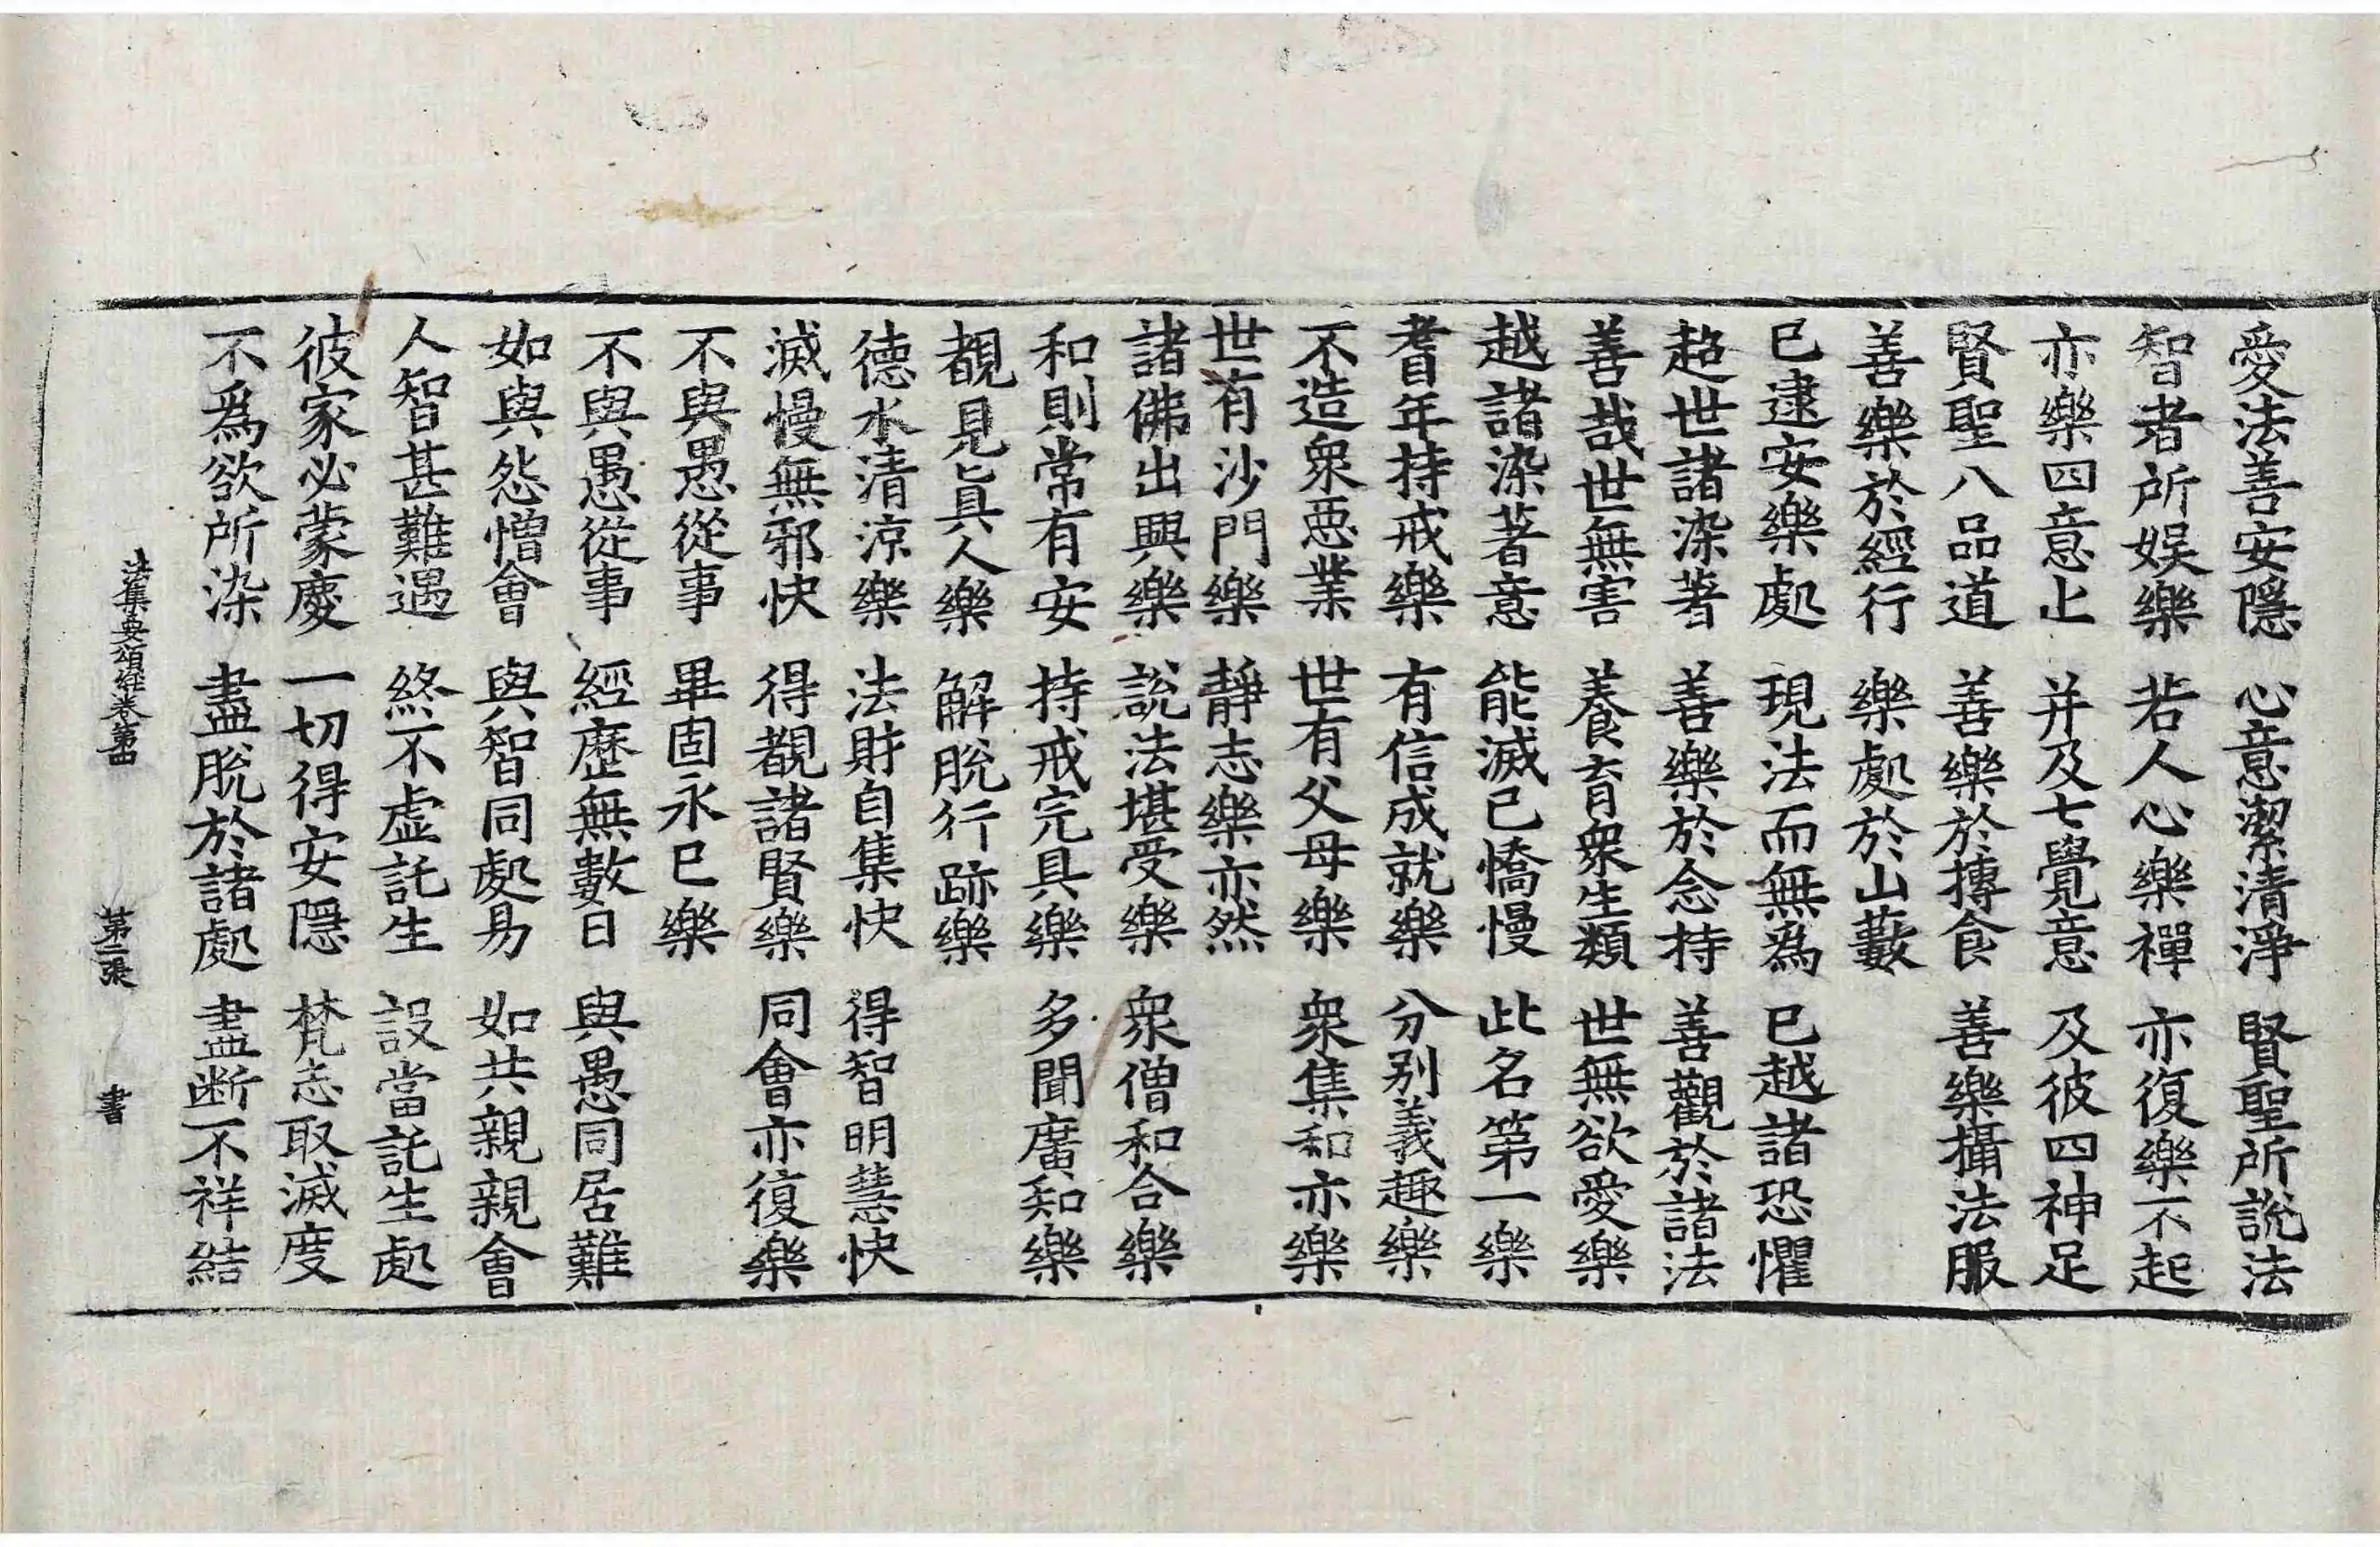 愛法善安隱　心意潔清淨　賢聖所說法
智者所娱樂　若人心樂禪　亦復樂不起
亦樂四意止　并及七覺意　及彼四神足
賢聖八品道　善樂於摶食　善樂攝法服
善樂於經行　樂處於山藪
已逮安樂處　現法而無爲　已越諸恐懼
超世諸染著　善樂於念持　善觀於諸法
善哉世無害　養育衆生類　世無欲愛樂
越諸染著意　能滅已憍慢　此名第一樂
耆年持戒樂　有信成就樂　分别義趣樂
不造衆惡業　世有父母樂　衆集和亦樂
世有沙門樂　靜志樂亦然
諸佛出興樂　說法堪受樂　衆僧和合樂
和則常有安　持戒完具樂　多聞廣知樂
覩見眞人樂　解脫行跡樂
德水清涼樂　法財自集快　得智明慧快
滅慢無邪快　得覩諸賢樂　同會亦復樂
不與愚從事　畢固永已樂
不與愚從事　經歷無數日　與愚同居難
如與怨憎會　與智同處易　如共親親會
人智甚難遇　終不虛託生　設當託生處
彼家必蒙慶　一切得安隱　梵志取滅度
不爲欲所染　盡脫於諸處　盡断不祥結
法集要頌經卷第四　第二張　書